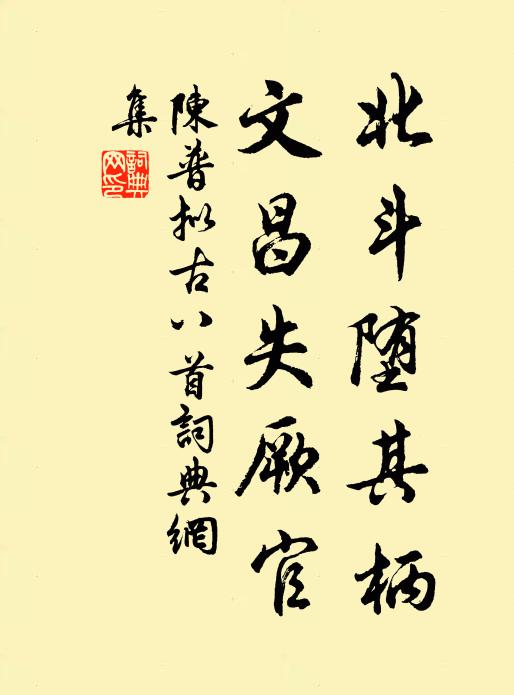 北斗堕其柄
文昌失厥官
陳普拟古八首詞典網
集
詞典
网印